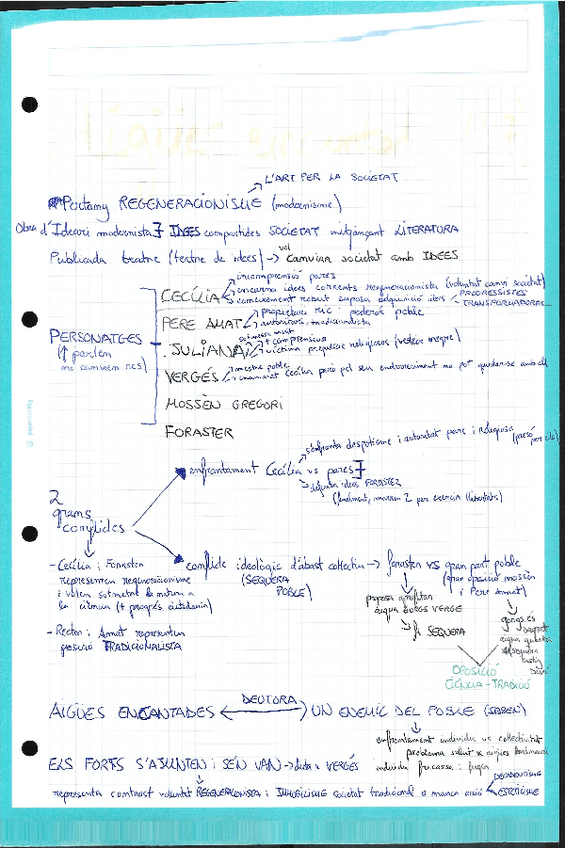 L'ART PER LA SOCIETAT
Portamy REGENERACIONISME (modernisme)
Obra d'Ideari modernista IDEES compartides SOCIETAT mitjançant LITERATURA
Publicada teatre (teatre de idees) → vol canviar societat amb IDEES
incomprensió pares
CECÍLIA encarna idees corrents regeneracionista (voluntat canvi societat)
coneixement rebut suposa adquisició idees PROGRESSISTES
TRANSFORMADORES
PERE AMAT propietari ric i poderós poble
autoritari
PERSONATGES
(↑ parlen
me canvien res)
sotmesa marit
JULIANA + comprensiva
víctima prejudicis religiosos (vesteix negre)
VERGÉS mestre poble
enamorat Cecília però pel seu endarreriment no pot quedar-se amb ell
MOSSÈN GREGORI
FORASTER
s'enfronta despotisme i autoritat pare i religiosa
enfrontament Cecília vs pares
adquirir idees FORASTER
(finalment, marxen 2 per exercir llibertats)
2
grans
conflictes
conflicte ideològic d'abast col·lectiu → foraster vs gran part poble
(SEQUERA
POBLE)
(gran oposició mossèn
i Pere Amat)
- Cecília i Foraster
representen regeneracionisme
i volen sotmetre la natura a
la ciència (+ progrés ciutadania)
- Rector i Amat representen
posició TRADICIONALISTA
proposa aprofitar
aigua GORGS VERGE
fi SEQUERA
gorgs és
sagrat
aigua quieta
sequera
càstig
diví
OPOSICIÓ
CIÈNCIA-TRADICIÓ
AIGÜES ENCANTADES ← DEUTORA → UN ENEMIC DEL POBLE (IBSEN)
enfrontament individu vs col·lectivitat
problema salut x aigües
individu fracassa i fugen
ELS FORTS S'AJUNTEN I SE'N VAN → VERGÉS
representa contrast voluntat REGENERACIONISTA i IMMOBILISME societat tradicional o manca acció DECADENTISME
ESTETICISME